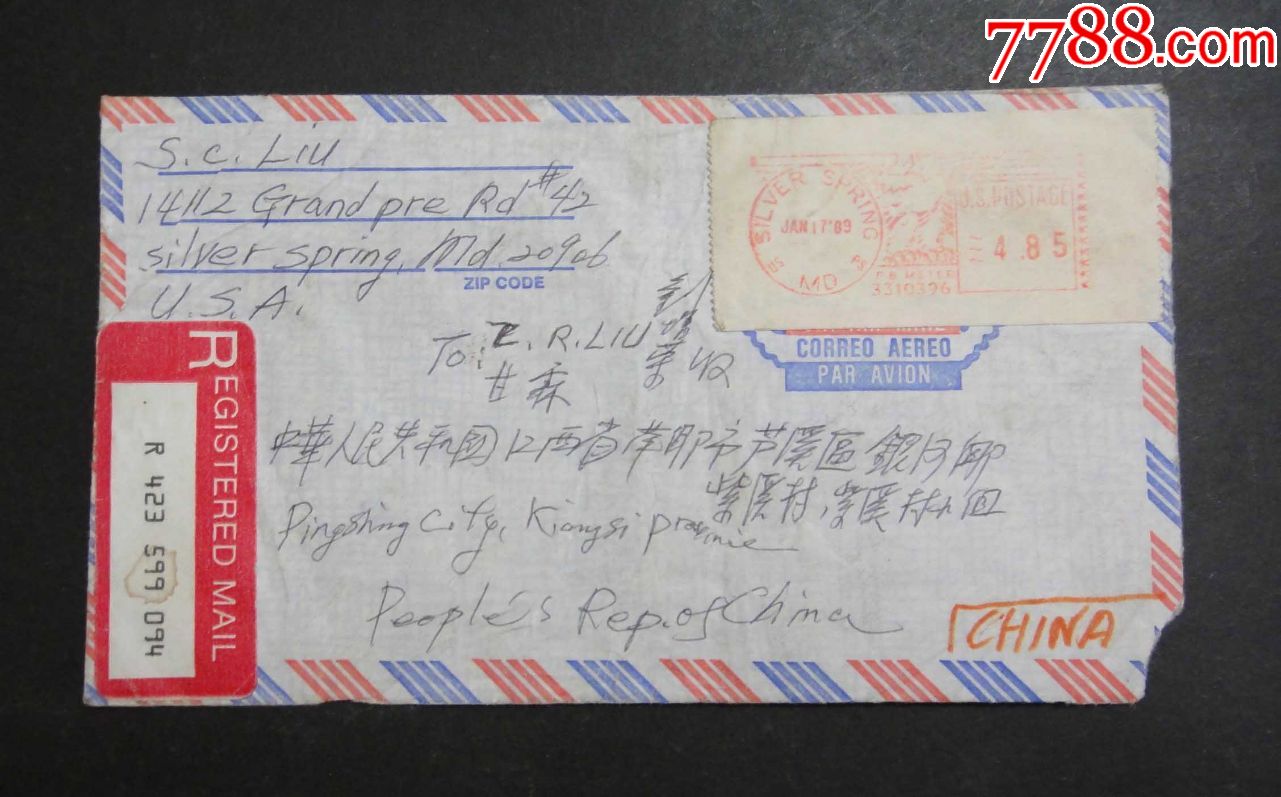 7788.com
S.C. LIU
14112 Grand pre Rd #42
silver spring, Md 20906
ZIP CODE
U.S.A.
SILVER SPRING
JAN 17 '89
MD
U.S. POSTAGE
4.85
PB METER
3310396
CORREO AEREO
PAR AVION
REGISTERED MAIL
R 423 599 094
To: R. LIU
中華人民共和國江西省萍鄉市芦溪區銀河鄉
紫溪村,紫溪村
Pingshing City, Kiangsi province
People's Rep. of China
CHINA